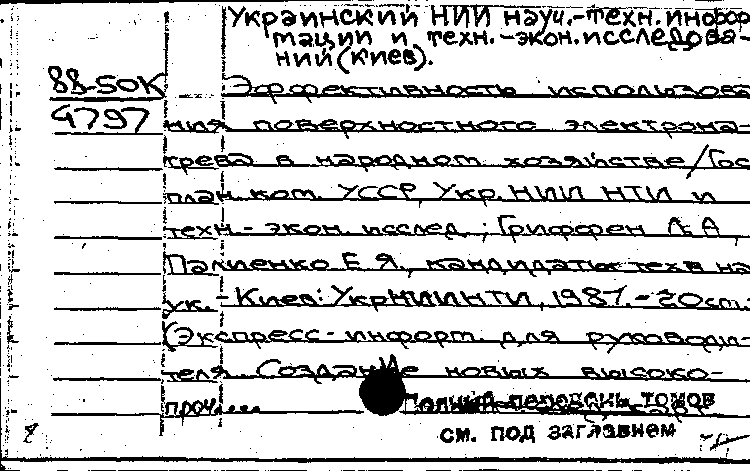 Украинский НИИ науч.-техн.инфор
тации и техн.-экон.исследова-
ний(Киев).
88-50К Эффективность использова
4797 ния поверхностного электрона-
грева в народном хозяйстве/Гос
план.ком. УССР, Укр.НИИ НТИ и
техн.-экон. исслед.; Гриффен Л.А,
Палиенко Е.Я., кандидаты техн на
ук.-Киев: УкрНИИНТИ, 1987.-20ст.
(Экспресс-информ. для руководи-
теля. Создание новых высоко-
проч....
Полный перечень томов
см. под заглавием